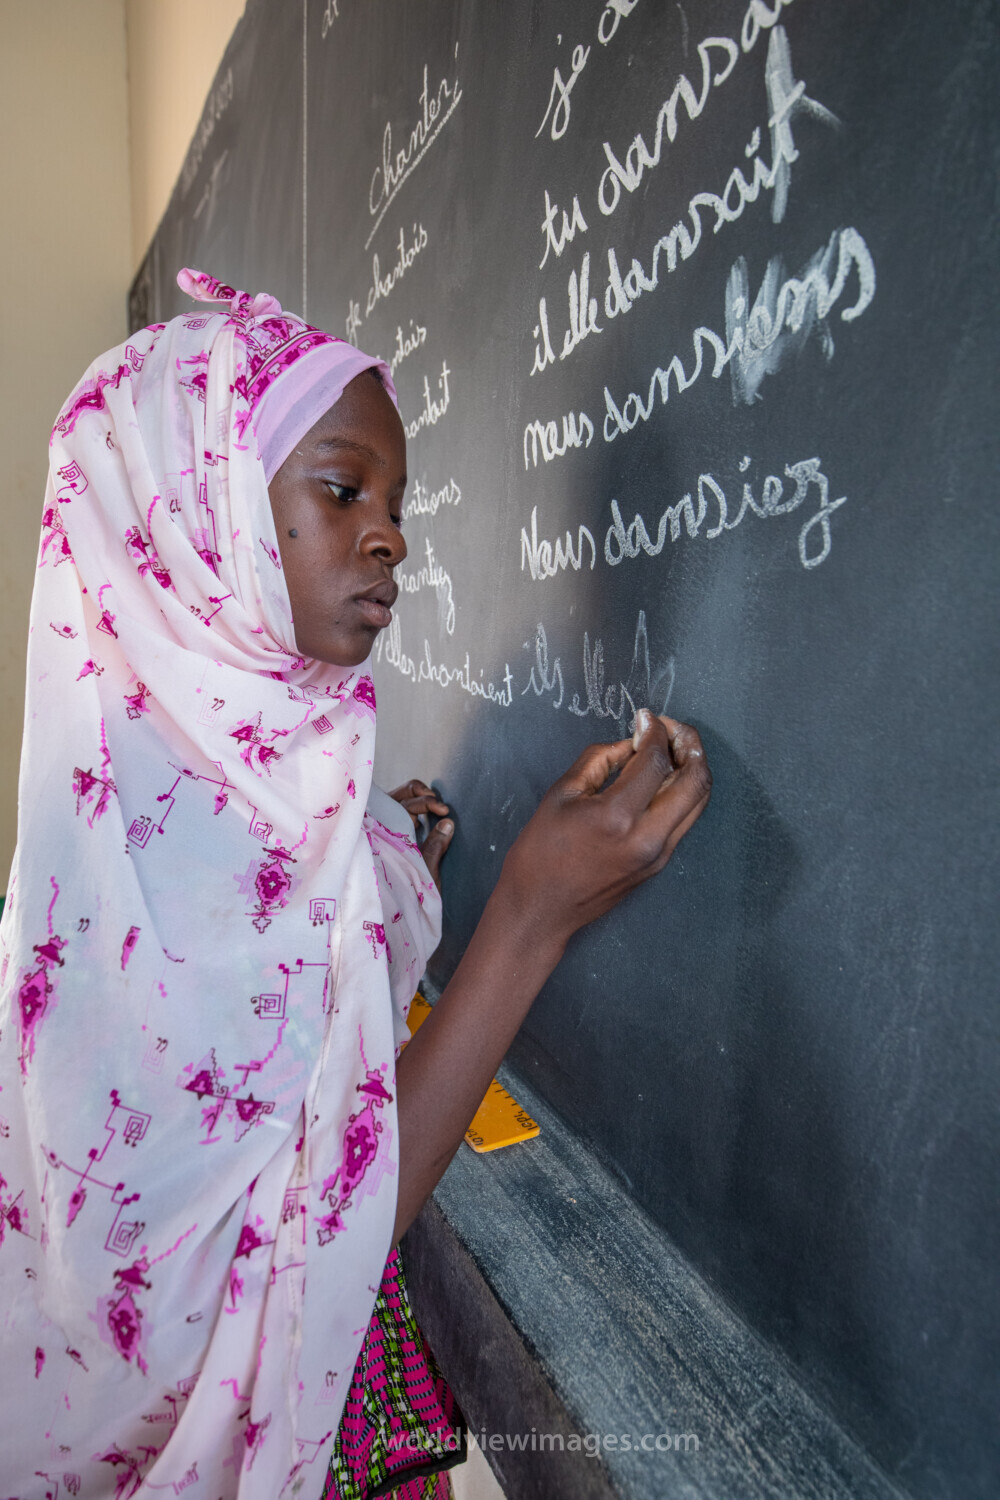 Chanter
Je chantais
ntais
hantait
ntions
hantiez
elles chantaient
je
tu dansai
il elle dansait
nous dansions
Vous dansiez
ils elles
worldviewimages.com